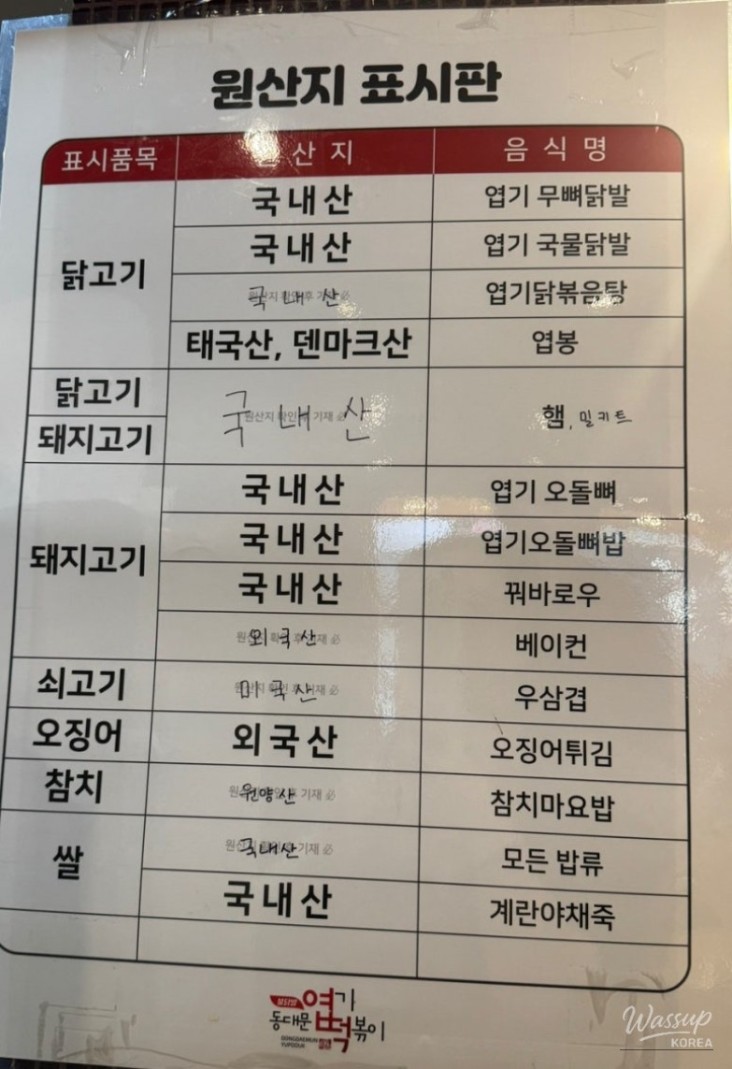 원산지 표시판
표시품목 산지 음식명
닭고기 국내산 엽기 무뼈닭발
국내산 엽기 국물닭발
국내산 엽기닭볶음탕
태국산, 덴마크산 엽봉
닭고기 돼지고기 국내산 햄, 밀키트
돼지고기 국내산 엽기 오돌뼈
국내산 엽기오돌뼈밥
국내산 꿔바로우
외국산 베이컨
쇠고기 미국산 우삼겹
오징어 외국산 오징어튀김
참치 원양산 참치마요밥
쌀 국내산 모든 밥류
국내산 계란야채죽
엽기
동대문 떡볶이
Wassup
KOREA